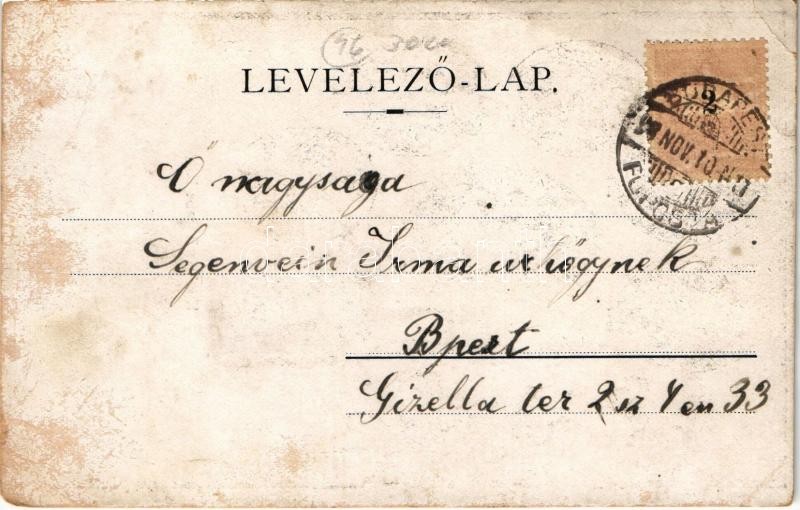 96
LEVELEZŐ-LAP.
2
BUDAPEST
NOV. 10.
FŐPOSTA
Ő nagysága
Segenvein Irma urhögynek
Bpest
Gizella ter 2 sz 4 em 33